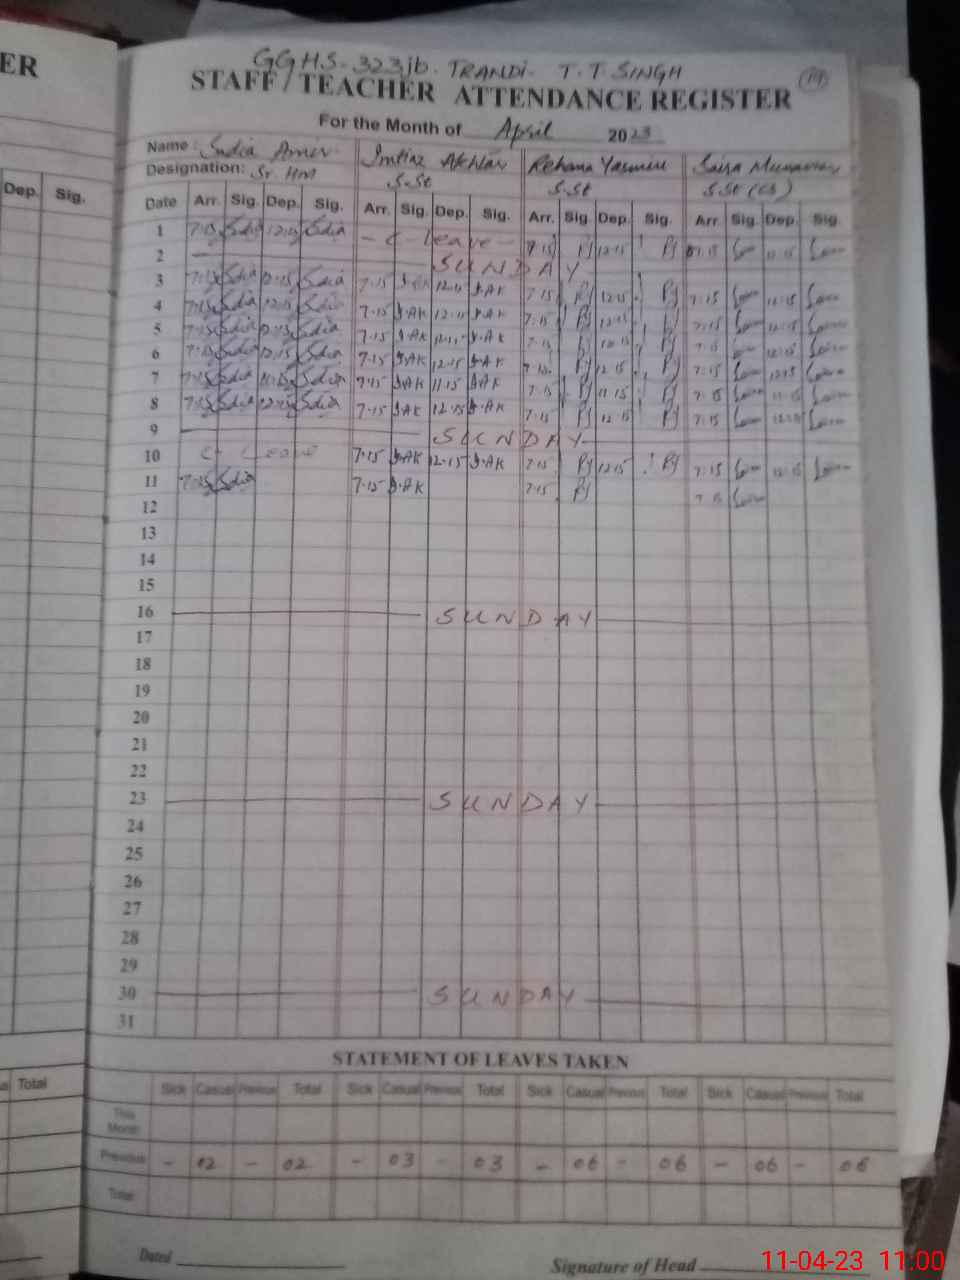 ER
GGHS-323jb. TRANDI- T.T.SINGH
STAFF / TEACHER ATTENDANCE REGISTER
19
For the Month of April 2023
Name: Sadia Amer Imtiaz Akhtar Rehana Yasmin Saira Munawar
Designation: Sr. HM S.St S.St S.St (CS)
Dep. Sig.
Date Arr. Sig. Dep. Sig. Arr. Sig. Dep. Sig. Arr. Sig. Dep. Sig. Arr. Sig. Dep. Sig.
1 7:15 Sadia 12:15 Sadia - C - Leave - 7:15 RY 12:15 RY 7:15 12:15
2 SUNDAY
3 7:15 Sadia 12:15 Sadia 7:15 I.AK 12:15 I.AK 7:15 RY 12:15 RY 7:15 12:15
4 7:15 Sadia 12:15 Sadia 7:15 I.AK 12:15 I.AK 7:15 RY 12:15 RY 7:15 12:15
5 7:15 Sadia 12:15 Sadia 7:15 I.AK 12:15 I.AK 7:15 RY 12:15 RY 7:15 12:15
6 7:15 Sadia 12:15 Sadia 7:15 I.AK 12:15 I.AK 7:15 RY 12:15 RY 7:15 12:15
7 7:15 Sadia 11:15 Sadia 7:15 I.AK 11:15 I.AK 7:15 RY 11:15 RY 7:15 11:15
8 7:15 Sadia 12:15 Sadia 7:15 I.AK 12:15 I.AK 7:15 RY 12:15 RY 7:15 12:15
9 SUNDAY
10 C - Leave 7:15 I.AK 12:15 I.AK 7:15 RY 12:15 RY 7:15 12:15
11 7:15 Sadia 7:15 I.AK 7:15 RY 7:15
12
13
14
15
16 SUNDAY
17
18
19
20
21
22
23 SUNDAY
24
25
26
27
28
29
30 SUNDAY
31
STATEMENT OF LEAVES TAKEN
Total
Sick Casual Previous Total Sick Casual Previous Total Sick Casual Previous Total Sick Casual Previous Total
This Month
Previous - 02 - 02 - 03 - 03 - 06 - 06 - 06 - 06
Total
Dated
Signature of Head
11-04-23 11:00